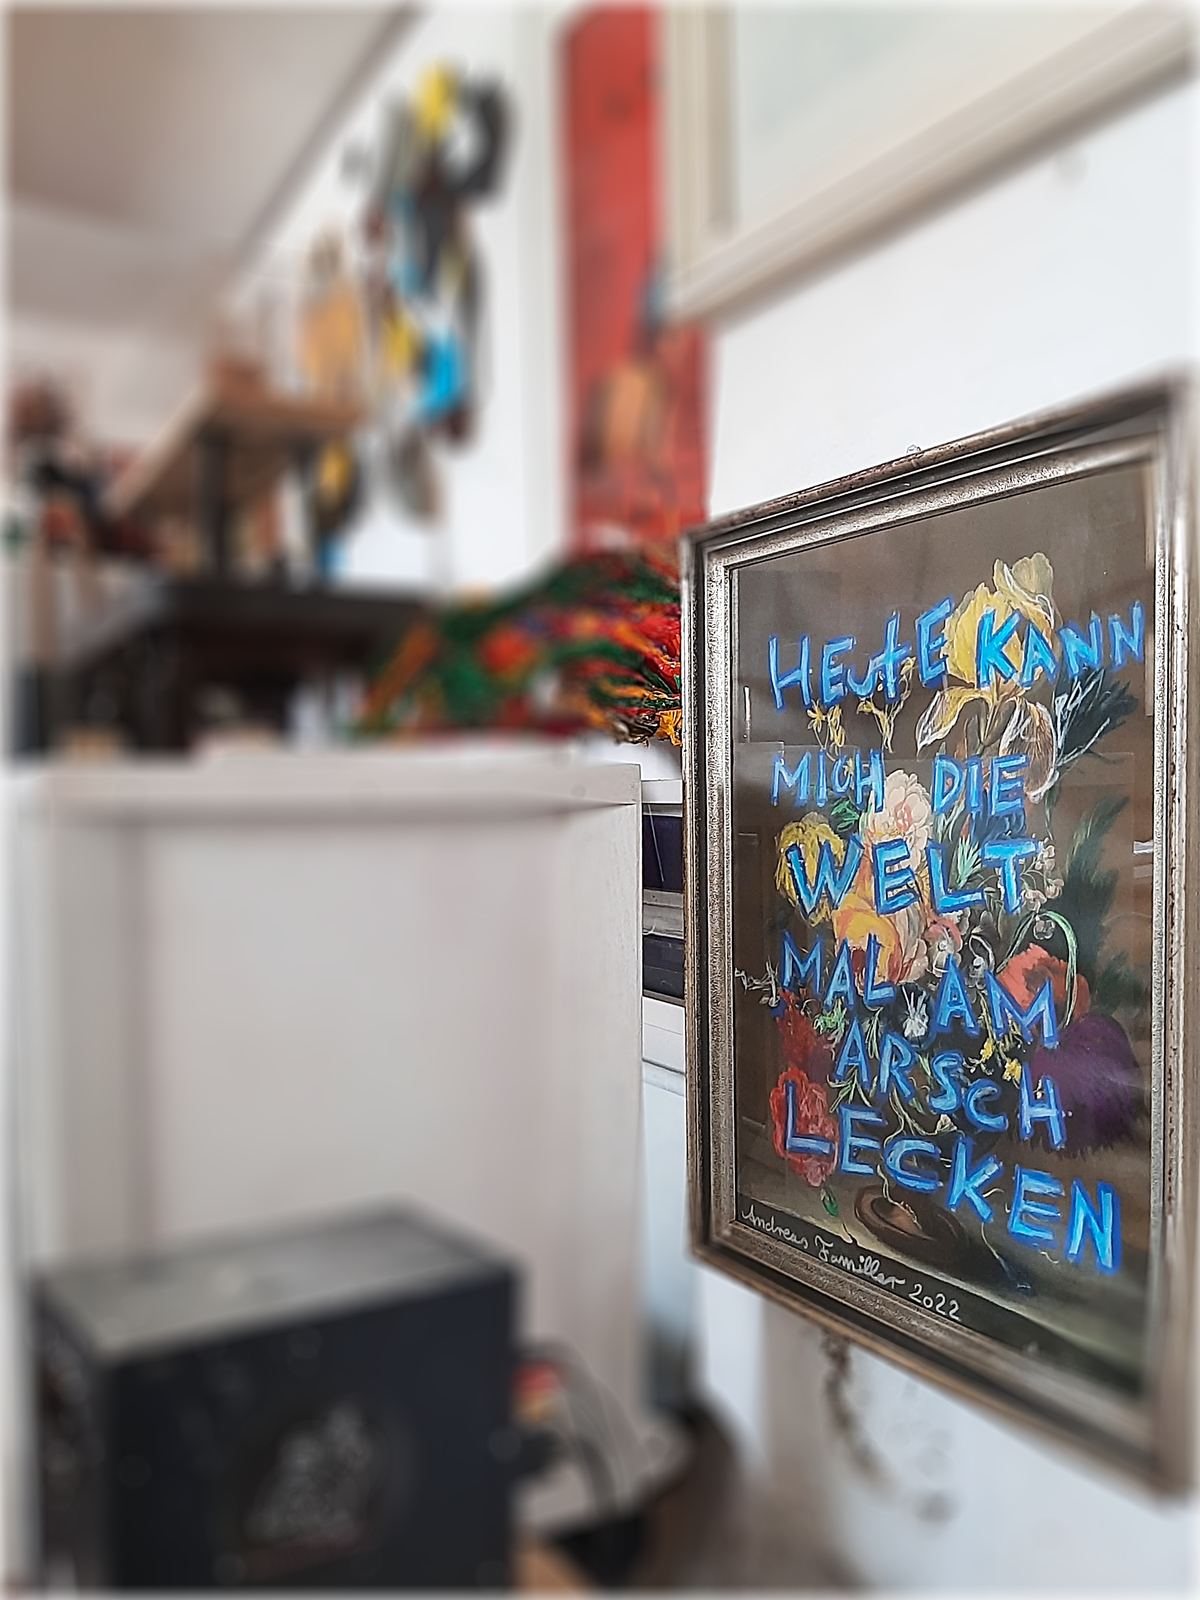 HEUTE KANN
MICH DIE
WELT
MAL AM
ARSCH
LECKEN
Andreas Familler 2022